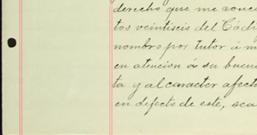 derecho que me conce
tos veintiseis del Códi
nombro por tutor á m
en atencion á su buen
ta y al caracter afect
en defecto de este, sea